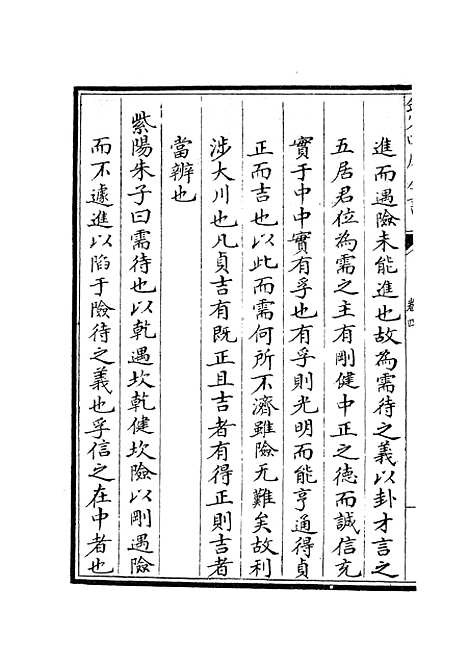 進而遇險未能進也故為需待之義以卦才言之
五居君位為需之主有剛健中正之德而誠信充
實于中中實有孚也有孚則光明而能亨通得貞
正而吉也以此而需何所不濟雖險无難矣故利
涉大川也凡貞吉有既正且吉者有得正則吉者
當辨也
紫陽朱子曰需待也以乾遇坎乾健坎險以剛遇險
而不遽進以陷于險待之義也孚信之在中者也
卷四